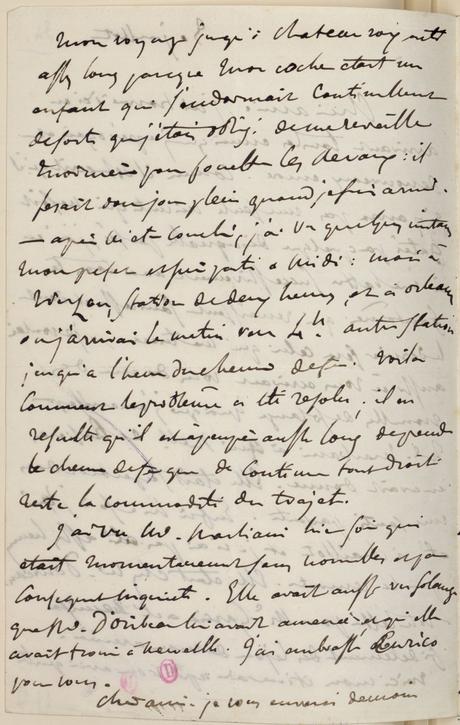 mon voyage jusqu'à Chateauroux a été
assez long parce que mon cocher était un
enfant qui s'endormait continuellement
de sorte que j'étais obligé de me reveiller
moi même pour fouetter les chevaux : il
fesait donc jour plein quand je suis arrivé.
— après m'être couché, j'ai vu quelques instans
mon préfet et suis parti à midi : mais à
Vierzon, station de deux heures, et à Orléans
où j'arrivai le matin vers 4h autre station
jusqu'à l'heure du chemin de fer. Voila
comment le problème a été résolu : il en
resulte qu'il est à peu près aussi long de prendre
le chemin de fer que de continuer tout droit
reste la commodité du trajet.
J'ai vu Me. Marliani hier soir qui
était momentanement sans nouvelles et par
conséquent inquiète. Elle avait aussi vu Solange
que Me. Doribeau lui avait amenée et qu'elle
avait trouvée à merveille. J'ai embrassé Enrico
pour vous.
chère amie. je vous enverrai demain